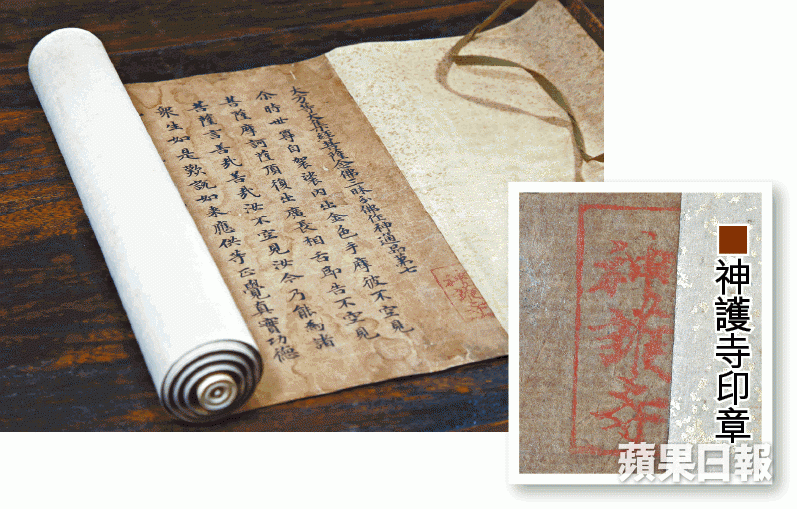 大方等大集經菩薩念佛三昧分佛作神通品第七
尒時世尊自袈裟內出金色手摩彼不空見
菩薩摩訶薩頂復出廣長相舌即告不空見
菩薩言善哉善哉汝不空見汝今乃能為諸
眾生如是歎說如來應供等正覺真實功德
神護寺
神護寺
■神護寺印章
蘋果日報